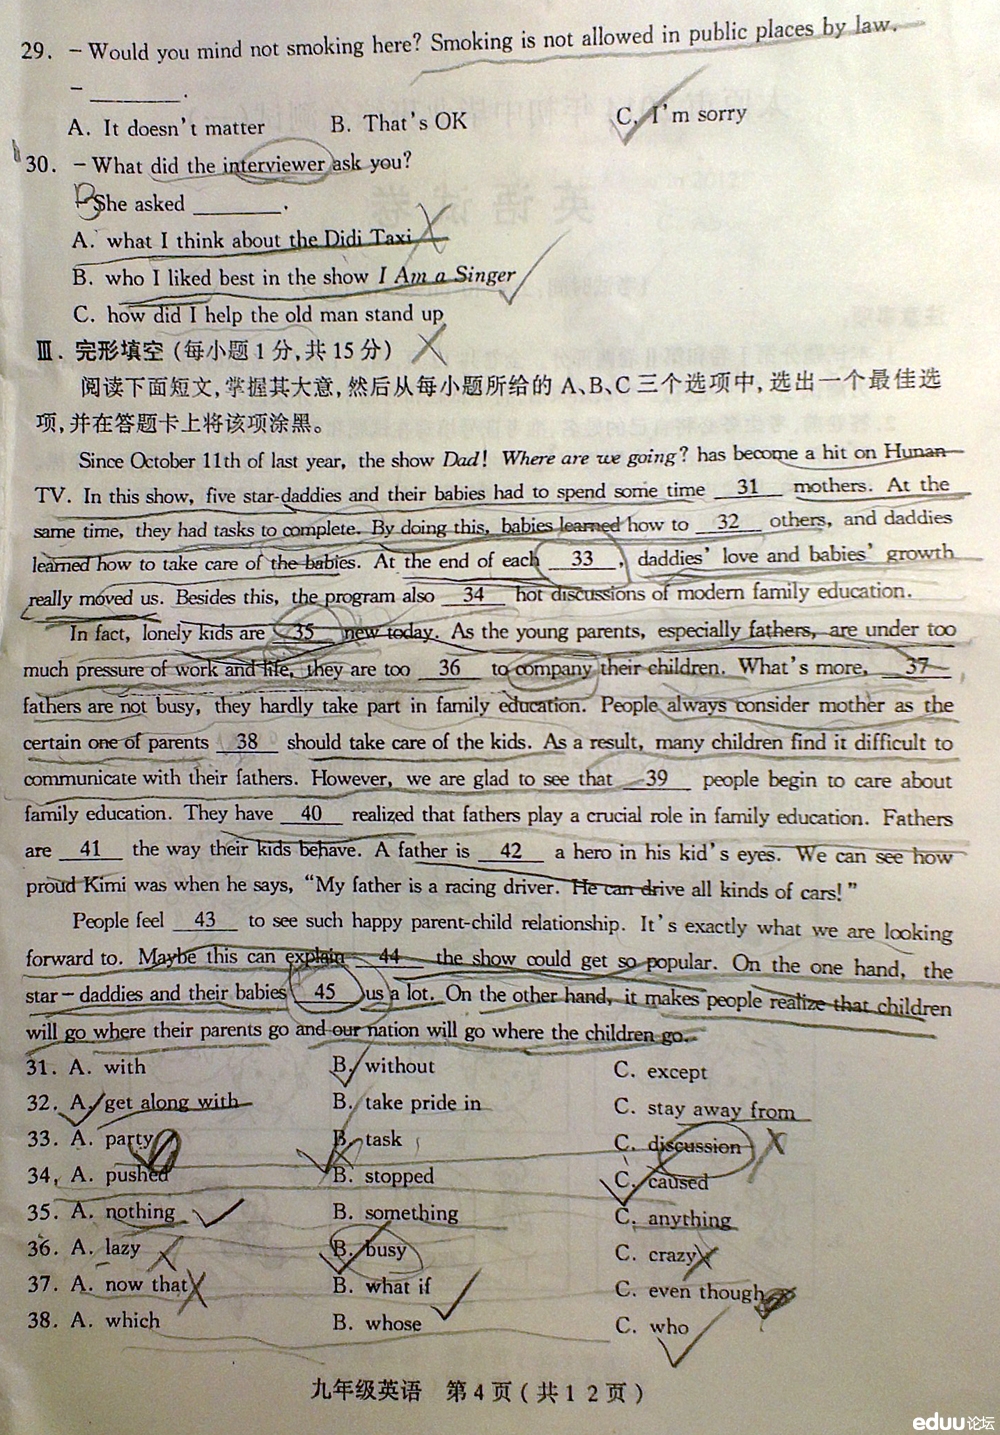 29. －Would you mind not smoking here? Smoking is not allowed in public places by law.
－________.
A. It doesn't matter B. That's OK C. I'm sorry
30. －What did the interviewer ask you?
B
－She asked ________.
A. what I think about the Didi Taxi
B. who I liked best in the show I Am a Singer
C. how did I help the old man stand up
Ⅲ. 完形填空 (每小题1分,共15分)
阅读下面短文,掌握其大意,然后从每小题所给的 A、B、C 三个选项中,选出一个最佳选
项,并在答题卡上将该项涂黑。
Since October 11th of last year, the show Dad! Where are we going? has become a hit on Hunan
TV. In this show, five star-daddies and their babies had to spend some time __31__ mothers. At the
same time, they had tasks to complete. By doing this, babies learned how to __32__ others, and daddies
learned how to take care of the babies. At the end of each __33__, daddies' love and babies' growth
really moved us. Besides this, the program also __34__ hot discussions of modern family education.
In fact, lonely kids are __35__ new today. As the young parents, especially fathers, are under too
much pressure of work and life, they are too __36__ to company their children. What's more, __37__
fathers are not busy, they hardly take part in family education. People always consider mother as the
certain one of parents __38__ should take care of the kids. As a result, many children find it difficult to
communicate with their fathers. However, we are glad to see that __39__ people begin to care about
family education. They have __40__ realized that fathers play a crucial role in family education. Fathers
are __41__ the way their kids behave. A father is __42__ a hero in his kid's eyes. We can see how
proud Kimi was when he says, "My father is a racing driver. He can drive all kinds of cars!"
People feel __43__ to see such happy parent-child relationship. It's exactly what we are looking
forward to. Maybe this can explain __44__ the show could get so popular. On the one hand, the
star－daddies and their babies __45__ us a lot. On the other hand, it makes people realize that children
will go where their parents go and our nation will go where the children go.
31. A. with B. without C. except
32. A. get along with B. take pride in C. stay away from
33. A. party B. task C. discussion
34. A. pushed B. stopped C. caused
35. A. nothing B. something C. anything
36. A. lazy B. busy C. crazy
37. A. now that B. what if C. even though
38. A. which B. whose C. who
九年级英语 第4页(共12页)
eduu论坛